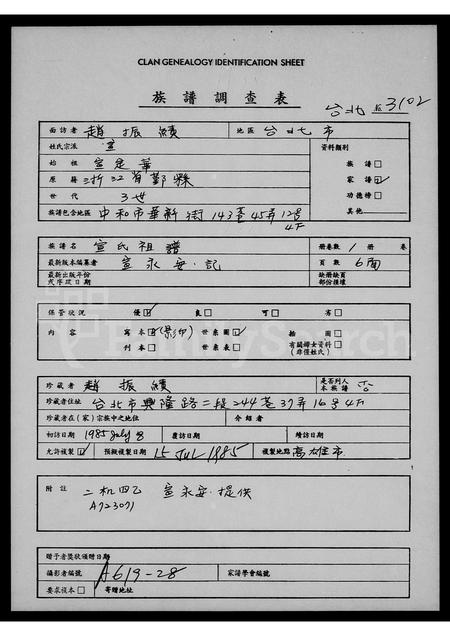 CLAN GENEALOGY IDENTIFICATION SHEET
族譜調查表
台北 № 3102
面訪者 趙振績 地區 台北市
姓氏宗派 宣 資料類別
始祖 宣定華 族譜□
原籍 浙江省鄞縣 家譜☑
世代 3世 功德榜□
族譜包含地區 中和市華新街143巷45弄12号4F 其他
族譜名 宣氏祖譜 册卷數 1 册 卷
最新版本編纂者 宣永安·記 頁數 6面
最新出版年份或序跋日期 缺册缺頁部份損壞
保管狀況 優☑ 良□ 可□ 劣□
內容 寫本☑(影印) 世系圖☑ 插圖□
刊本□ 世系表□ 有關婦女資料(非僅姓氏)□
珍藏者 趙振績 是否列入本族譜 否
珍藏者住址 台北市興隆路二段244巷37弄16号4F
珍藏者在(家)宗族中之地位 介紹者
初訪日期 1985 July 8 覆訪日期 續訪日期
允許複製☑ 預擬複製日期 15 JUL 1985 複製地點 高雄市.
附註 二机四乙 宣永安·提供
A723071
贈予者獎狀頒贈日期
攝影者編號 A619-28 家譜學會編號
要求複本□ 寄贈地址
FamilySearch